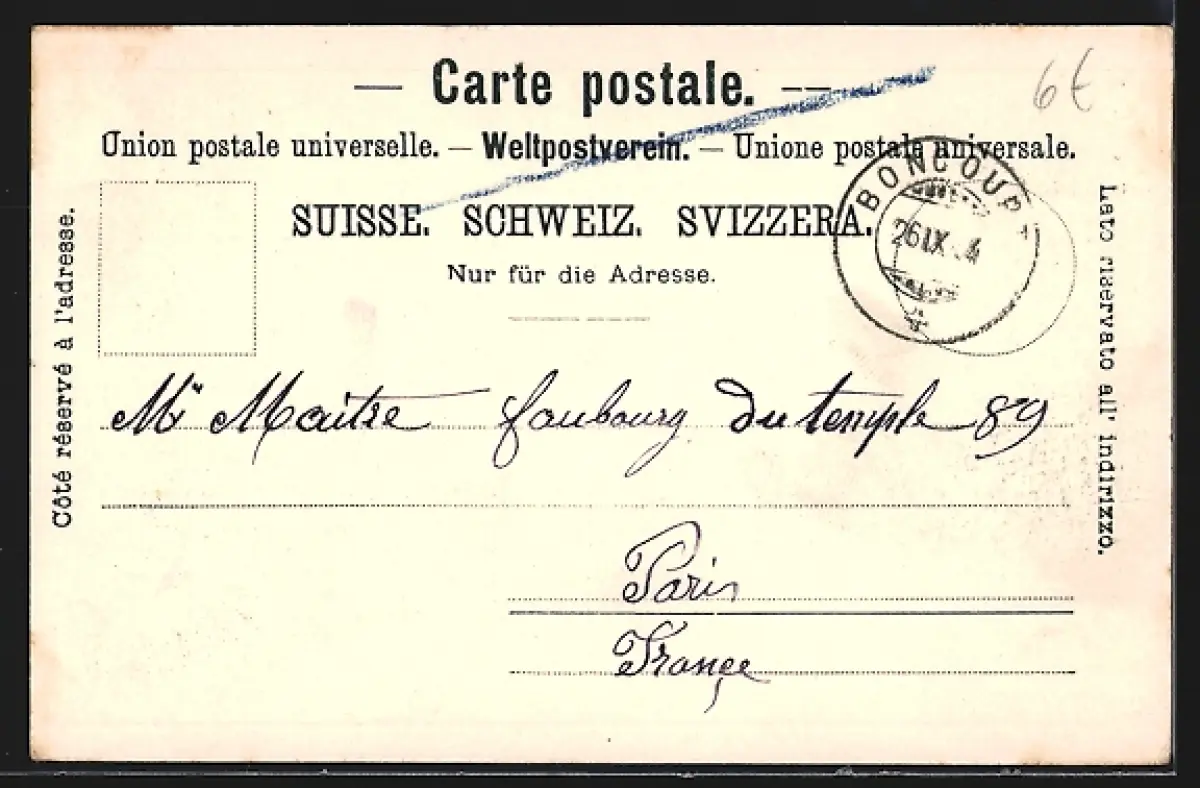 — Carte postale. —
6€
Union postale universelle. — Weltpostverein. — Unione postale universale.
SUISSE. SCHWEIZ. SVIZZERA.
Nur für die Adresse.
BONCOURT
26 IX 4
Côté réservé à l'adresse.
Lato riservato all' indirizzo.
Mr Maitre faubourg du temple 89
Paris
France